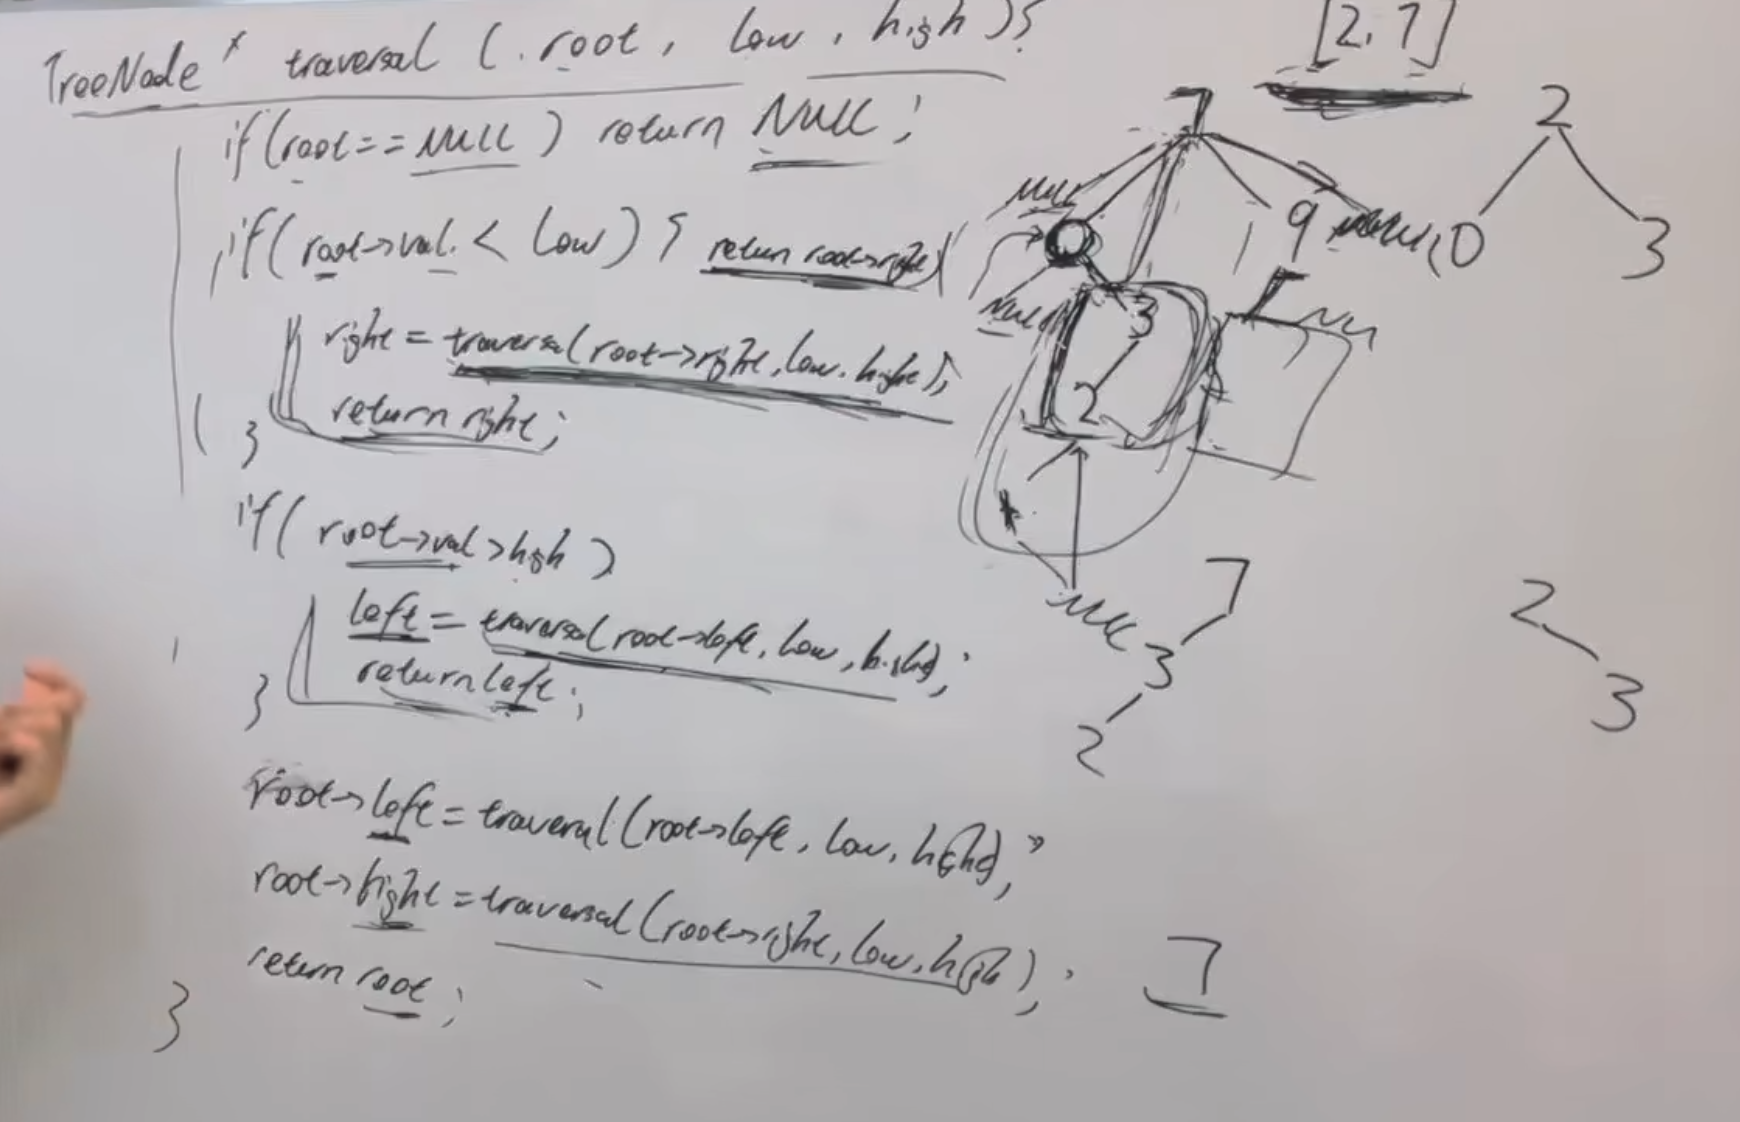 TreeNode* traversal (root, low, high){
if(root==NULL) return NULL;
if(root->val < low) { return root->right
right = traversal(root->right, low, high);
return right;
}
if(root->val>high)
left = traversal(root->left, low, high);
return left;
}
root->left = traversal(root->left, low, high);
root->right = traversal(root->right, low, high);
return root;
}
[2, 7]
7
NULL
9
NULL
3
2
NULL
2
0
3
7
3
2
2
3
7